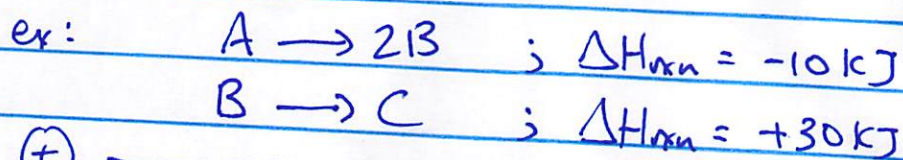 ex: A → 2B ; ΔHrxn = -10 kJ
B → C ; ΔHrxn = +30 kJ
⊕